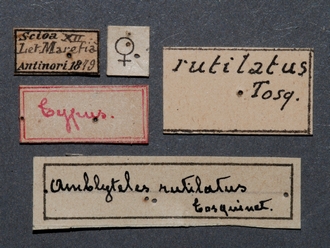 Scioa XII
Let Marefia
Antinori 1879
♀
rutilatus
Tosq.
Typus.
Amblyteles rutilatus
Tosquinet.